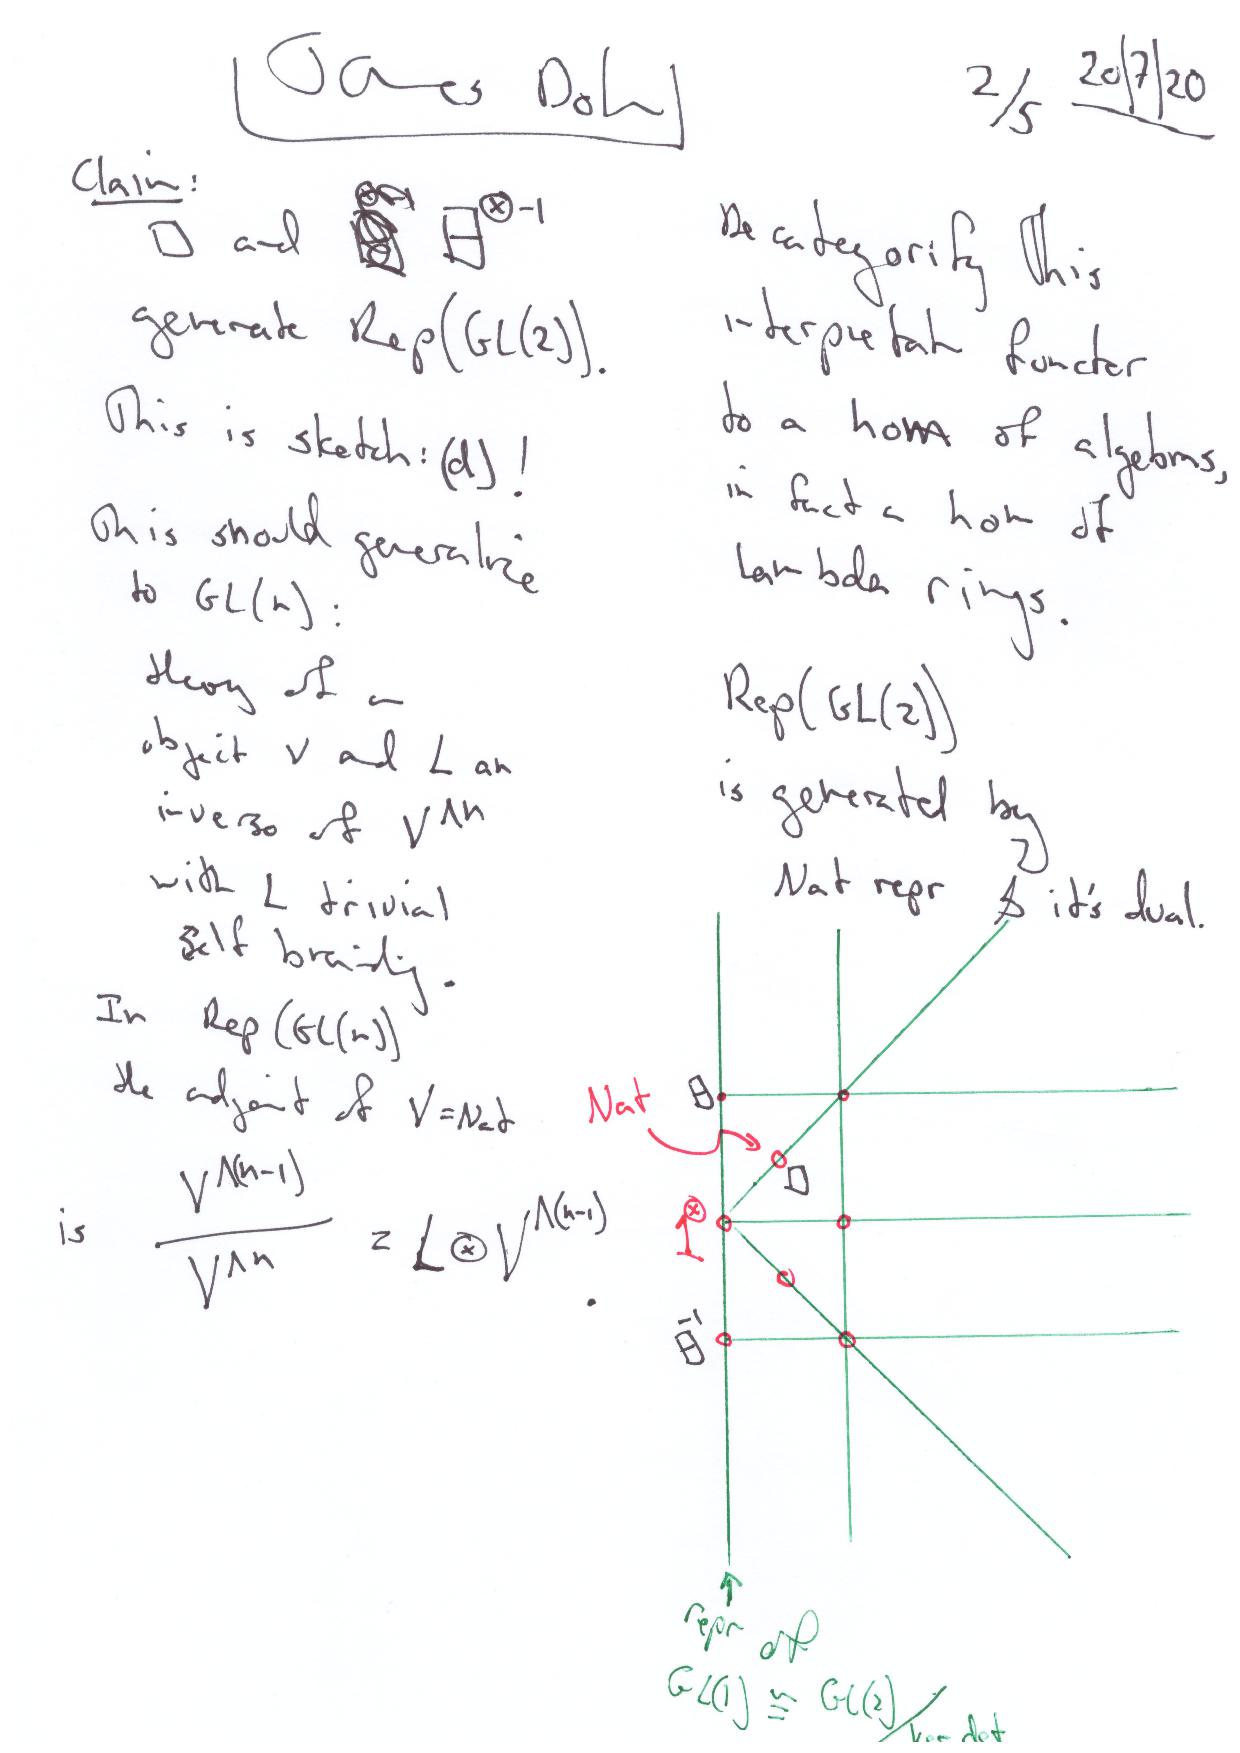 James Dol
2/5 20/7/20
Claim:
□ and ⊟^{⊗-1}
generate Rep(GL(2)).
This is sketch: (d)!
This should generalize
to GL(n):
theory of a
object V and L an
inverse of V^{Λn}
with L trivial
self braiding.
In Rep(GL(n))
the adjoint of V=Nat
is V^{Λ(n-1)} / V^{Λn} = L⊗V^{Λ(n-1)}.
Decategorify this
interpretatn functor
to a hom of algebras,
in fact a hom of
lambda rings.
Rep(GL(2))
is generated by
Nat repr & it's dual.
⊟
Nat
□
1^⊗
⊟^{-1}
↑
repr of
GL(1) ≅ GL(2)/ker det